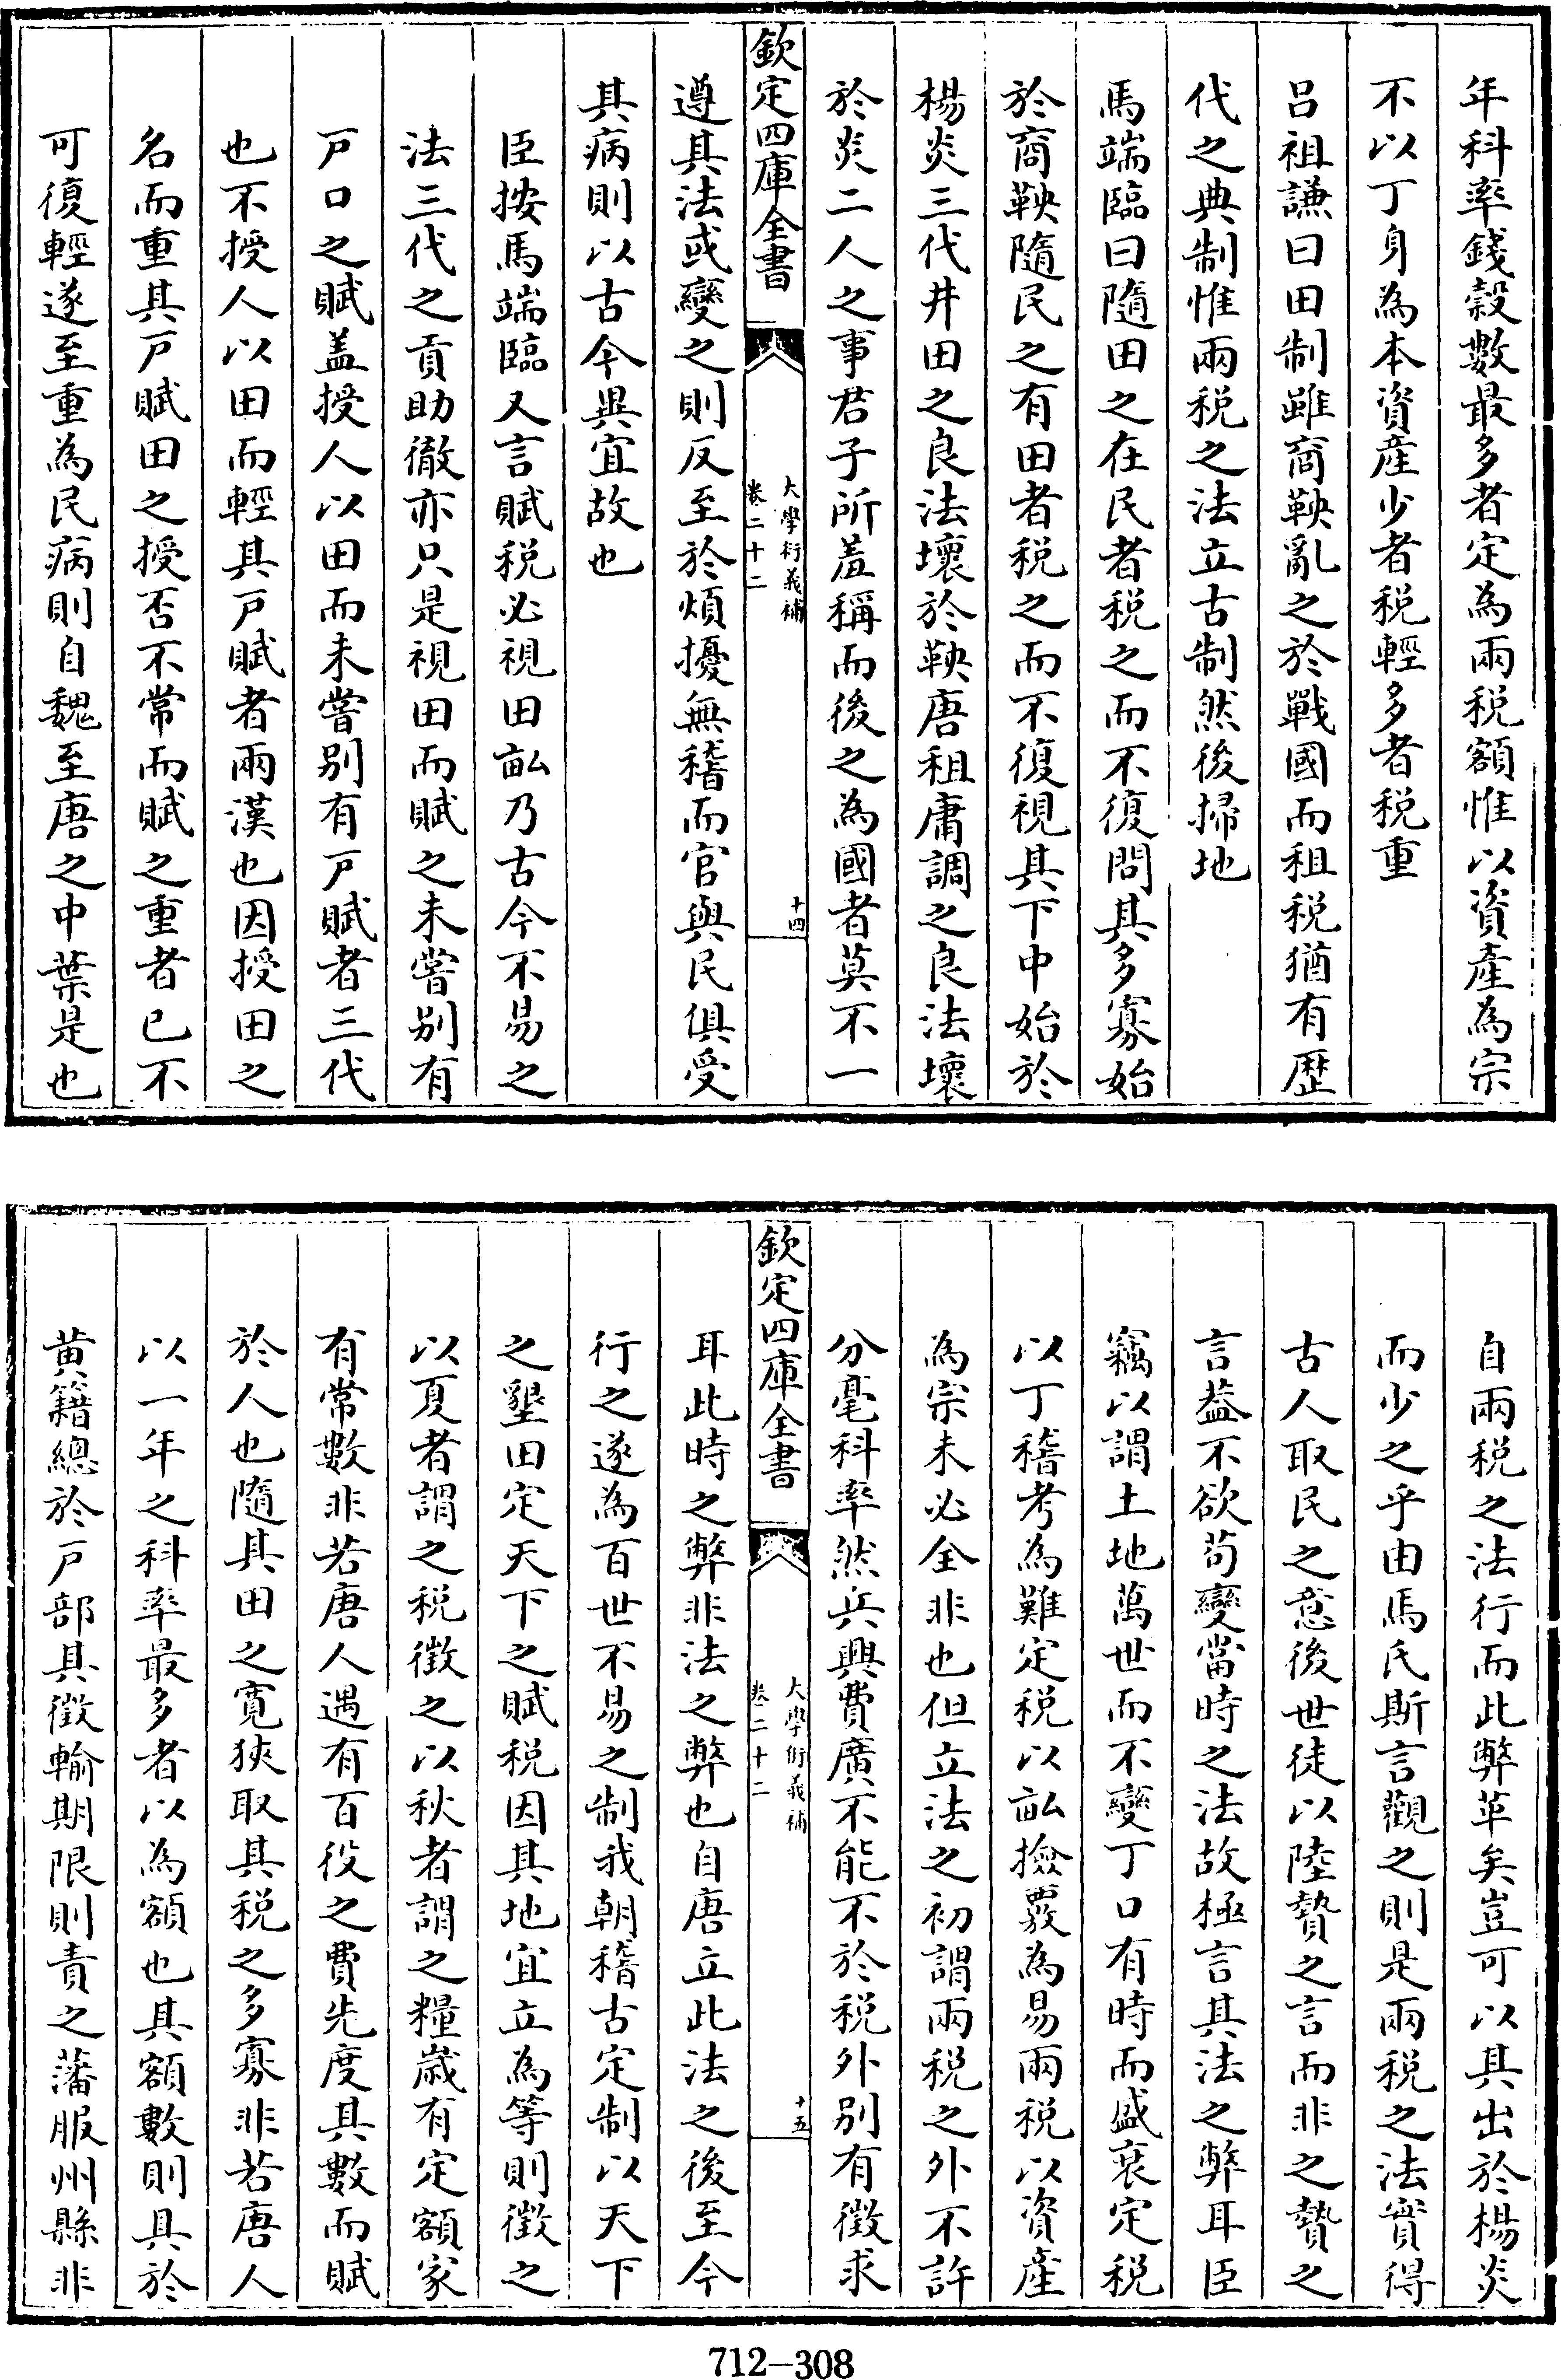 年科率錢穀數最多者定為兩税額惟以資產為宗
不以丁身為本資産少者税輕多者税重
吕祖謙曰田制雖商鞅亂之於戰國而租税猶有歴
代之典制惟兩税之法立古制然後掃地
馬端臨曰隨田之在民者税之而不復問其多寡始
於商鞅隨民之有田者税之而不復視其丁中始於
楊炎三代井田之良法壞於鞅唐租庸調之良法壞
於炎二人之事君子所羞稱而後之為國者莫不一
欽定四庫全書
大學衍義補
卷二十二
十四
遵其法或變之則反至於煩擾無稽而官與民俱受
其病則以古今異宜故也
臣按馬端臨又言賦税必視田畝乃古今不易之
法三代之貢助徹亦只是視田而賦之未嘗别有
戸口之賦盖授人以田而未嘗别有戸賦者三代
也不授人以田而輕其戸賦者兩漢也因授田之
名而重其戸賦田之授否不常而賦之重者已不
可復輕遂至重為民病則自魏至唐之中葉是也
自兩税之法行而此弊革矣豈可以其出於楊炎
而少之乎由馬氏斯言觀之則是兩税之法實得
古人取民之意後世徒以陸贄之言而非之贄之
言葢不欲苟變當時之法故極言其法之弊耳臣
竊以謂土地萬世而不變丁口有時而盛衰定税
以丁稽考為難定税以畝撿覈為易兩税以資産
為宗未必全非也但立法之初謂兩税之外不許
分毫科率然兵興費廣不能不於税外别有徵求
欽定四庫全書
大學衍義補
卷二十二
十五
耳此時之弊非法之弊也自唐立此法之後至今
行之遂為百世不易之制我朝稽古定制以天下
之墾田定天下之賦税因其地宜立為等則徵之
以夏者謂之税徵之以秋者謂之糧歳有定額家
有常數非若唐人遇有百役之費先度其數而賦
於人也隨其田之寛狹取其税之多寡非若唐人
以一年之科率最多者以為額也其額數則具於
黄籍總於戸部其徵輸期限則責之藩服州縣非
712-308